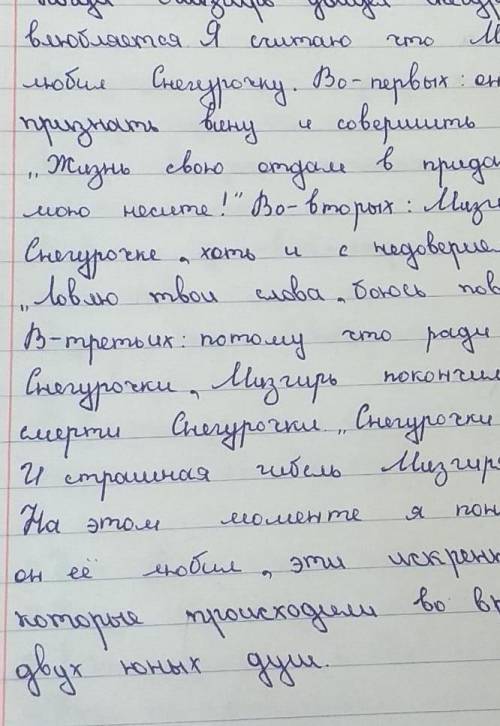 влюбляется. Я считаю что М
любил Снегурочку. Во-первых: он
признать вину и совершить
„Жизнь свою отдам в прида
мою несите!" Во-вторых: Мизги
Снегурочке, хоть и с недоверие
„Ловлю твои слова, боюсь пов
В-третьих: потому что ради
Снегурочки, Мизгирь покончил
смерти Снегурочки „Снегурочки
И страшная гибель Мизгир
На этом моменте я пон
он её любил, эти искрен
которые происходили во вн
двух юных душ.